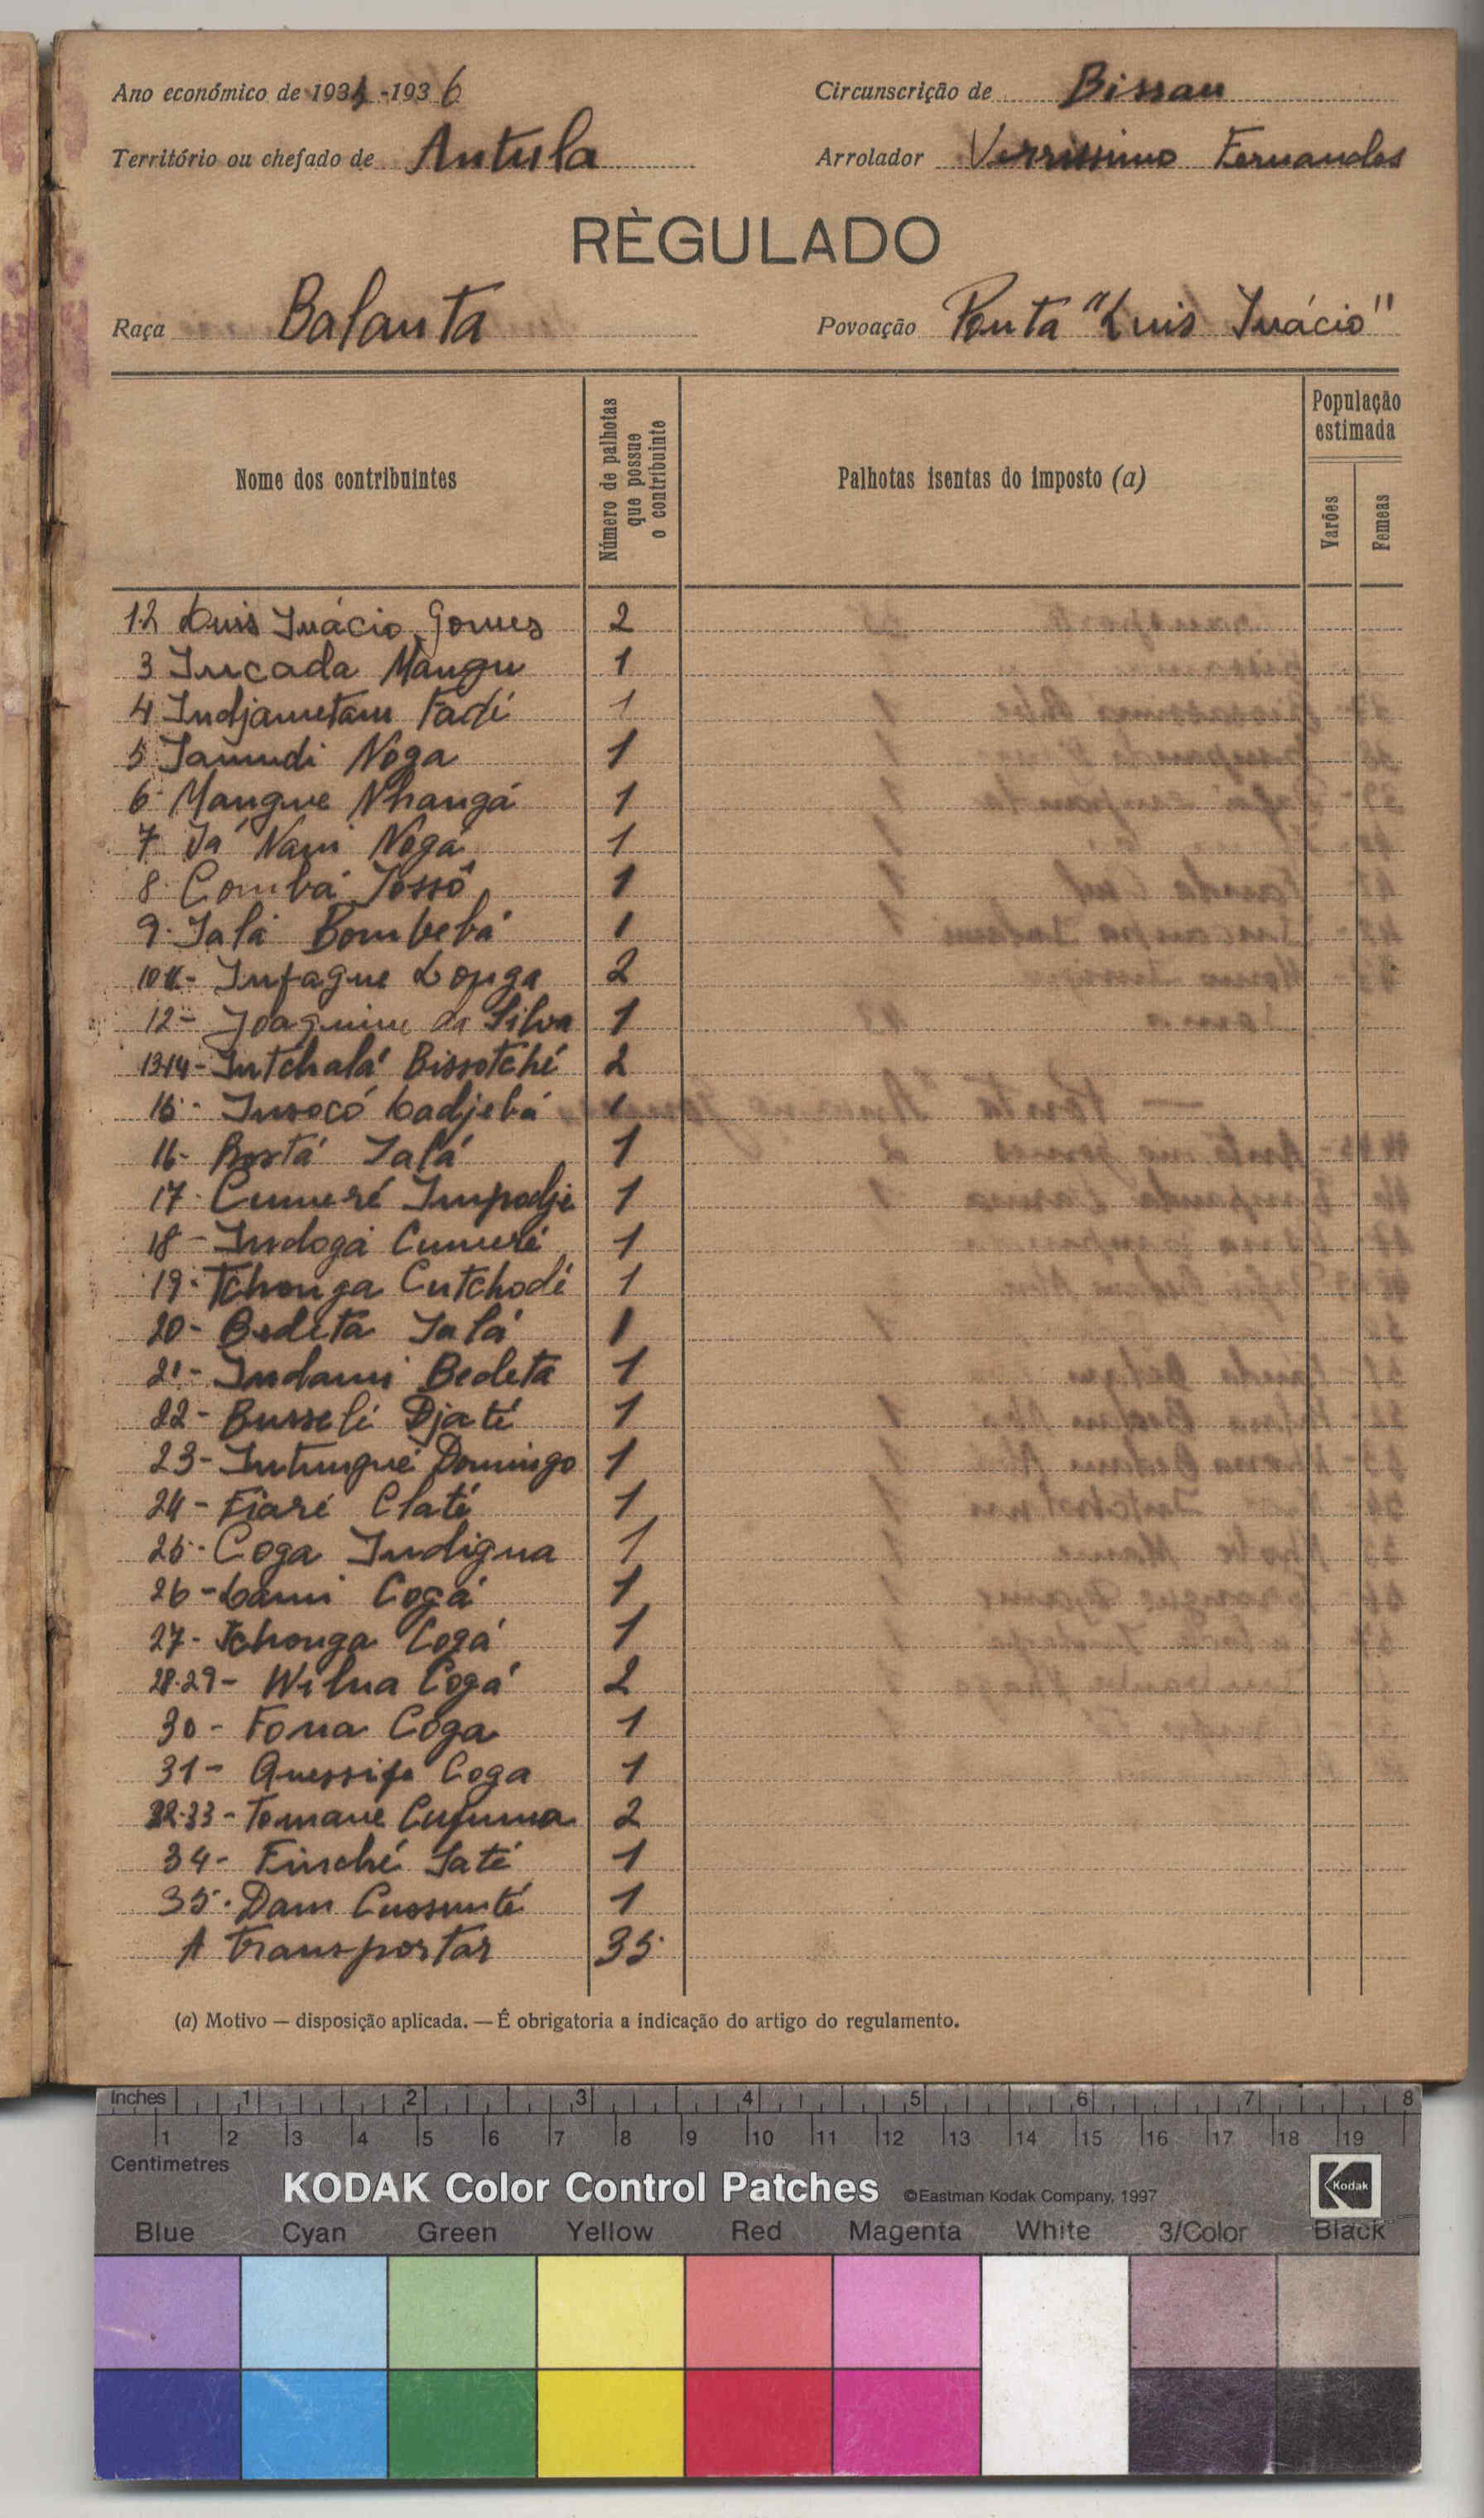 Ano económico de 1935-1936
Circunscrição de Bissau
Território ou chefado de Antula
Arrolador Verríssimo Fernandes
RÈGULADO
Raça Balanta
Povoação Ponta "Luis Inácio"
Nome dos contribuintes
Número de palhotas que possue o contribuinte
Palhotas isentas do imposto (a)
População estimada
Varões
Femeas
1-2 Luis Inácio Gomes 2
3 Incada Mangu 1
4 Indjametam Fadi 1
5 Iamudi Noga 1
6 Mangue Nhangá 1
7 Iá Nani Nogá 1
8 Combá Iossô 1
9 Ialá Bombebá 1
10 11- Infague Longa 2
12- Joaquim da Silva 1
13-14- Intchalá Bissotché 2
15- Insocó Ladjebá 1
16- Bostá Ialá 1
17- Cumeré Impodje 1
18- Indogá Cumeré 1
19- Tchonga Cutchodé 1
20- Bedeta Ialá 1
21- Indami Bedeta 1
22- Busselé Djaté 1
23- Intungué Domingo 1
24- Fiaré Claté 1
25- Coga Indigna 1
26- Lami Cogá 1
27- Tchonga Cogá 1
28-29- Wilna Cogá 2
30- Fona Coga 1
31- Quessife Coga 1
32-33- Tomane Cufuma 2
34- Finché Iaté 1
35- Dam Cussunté 1
A transportar 35
(a) Motivo — disposição aplicada. — É obrigatoria a indicação do artigo do regulamento.
Inches 1 2 3 4 5 6 7 8
1 2 3 4 5 6 7 8 9 10 11 12 13 14 15 16 17 18 19
Centimetres
KODAK Color Control Patches ©Eastman Kodak Company, 1997 Kodak
Blue Cyan Green Yellow Red Magenta White 3/Color Black